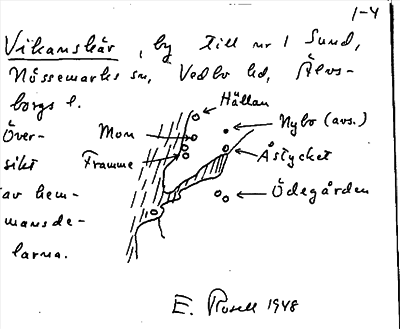 1-4
Vikanskär, by till nr 1 Sund,
Nössemarks sn, Vedbo hd, Älvs-
borgs l.
Över-
sikt
av hem-
mansde-
larna.
Hällan
Mon
Nybo (avs.)
Framme
Åstycket
Ödegården
E. Rosell 1948